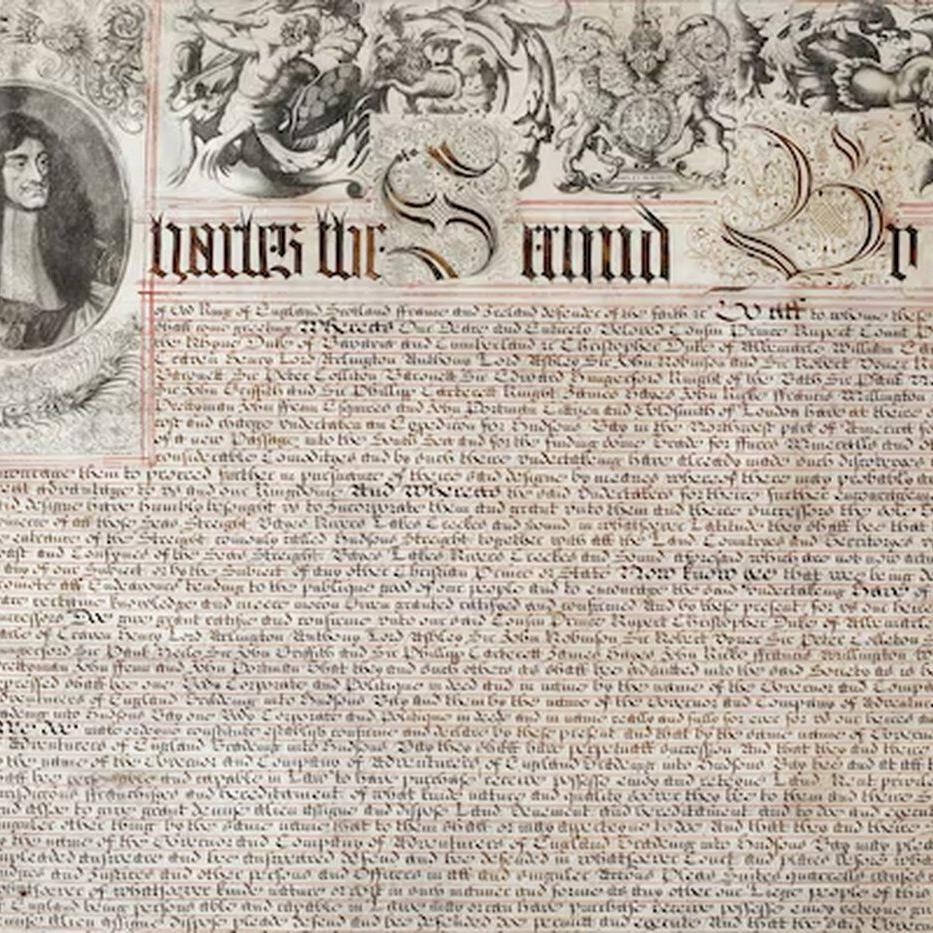 harles the Second By
of God King of England Scotland ffrance and Ireland defender of the faith &c To all to whome these
shall come greeting Whereas Our Deare and Entirely Beloved Cousin Prince Rupert Count
the Rhyne Duke of Bavaria and Cumberland &c Christopher Duke of Albemarle William
Craven Henry Lord Arlington Anthony Lord Ashley Sir John Robinson and Sir Robert Vyner
Baronett Sir Peter Colliton Baronett Sir Edward Hungerford Knight of the Bath Sir Paul
Sir John Griffith and Sir Phillip Carteret Knight James Hayes John Kirke ffrancis Millington
Prettyman John ffenn Esquires and John Portman Cittizen and Goldsmith of London have at theire
cost and charge undertaken an Expedicion for Hudsons Bay in the Northwest part of America
of a new Passage into the South Sea and for the finding some Trade for ffurrs Mineralls and
considerable Comodityes and by such theire undertakeing have already made such discoveryes
them to proceed further in pursuance of theire said designe by meanes whereof there may probably
advantage to us and our Kingdome And Whereas the said Undertakers for theire further
designe have humbly besought us to Incorporate them and grant unto them and theire Successors the sole
of all those Seas Streight Bayes Rivers Lakes Creekes and Sound in whatsoever Latitude they shall bee that
entrance of the Streight comonly called Hudsons Streight together with all the Land Countryes and Territoryes
and Confynes of the Seas Streight Bayes Lakes Rivers Creekes and Sound aforesaid which are not now
any of our Subject or by the Subject of any other Christian Prince or State Now know yee that wee being
promote all Endeavours tending to the publique good of our people and to encourage the said undertakeing Have
certaine knowledge and meere mocion Given granted ratifyed and confirmed And by these present for us our
Successors Doe give grant ratifie and confirme unto our said Cousin Prince Rupert Christopher Duke of
of Craven Henry Lord Arlington Anthony Lord Ashley Sir John Robinson Sir Robert Vyner Sir Peter Colleton
Sir Paul Neile Sir John Griffith and Sir Phillip Carterett James Hayes John Kirke ffrancis Millington
John ffenn and John Portman That they and such others as shall bee admitted into the said Society as is
shall bee one Body Corporate and Politique in deed and in name by the name of the Governor and
of England tradeing into Hudsons Bay and them by the name of the Governor and Company of
into Hudsons Bay one Body Corporate and Politique in deede and in name really and fully for ever for us our
make ordeyne constitute establish confirme and declare by these present and that by the same name of
Adventurers of England Tradeing into Hudsons Bay they shall have perpetuall succession And that they and theire
the name of the Governor and Company of Adventurers of England Tradeing into Hudsons Bay bee and at all
bee personable and capable in Law to have purchase receive possesse enjoy and reteyne Land Rent
ffranchises and hereditament of what kinde nature and quality soever they bee to them and theire
and alsoe to give grant demise alien assigne and dispose Land Tenement and hereditament and to doe and
singuler other thing by the same name that to them shall or may apperteyne to doe And that they and theire
the name of the Governor and Company of Adventurers of England Tradeing into Hudsons Bay may
impleaded answeare and bee answeared defend and bee defended in whatsoever Court and places before
and Justices and other persons and Officers in all and singuler Accons Pleas Suites quarrells causes
whatsoever of whatsoever kinde nature or sort in such manner and forme as any other our Liege people of this
England being persons able and capable in Lawe may or can have purchase receive possesse enjoy reteyne
demise alien assigne dispose pleade defend and bee defended doe permitt and execute And that the said